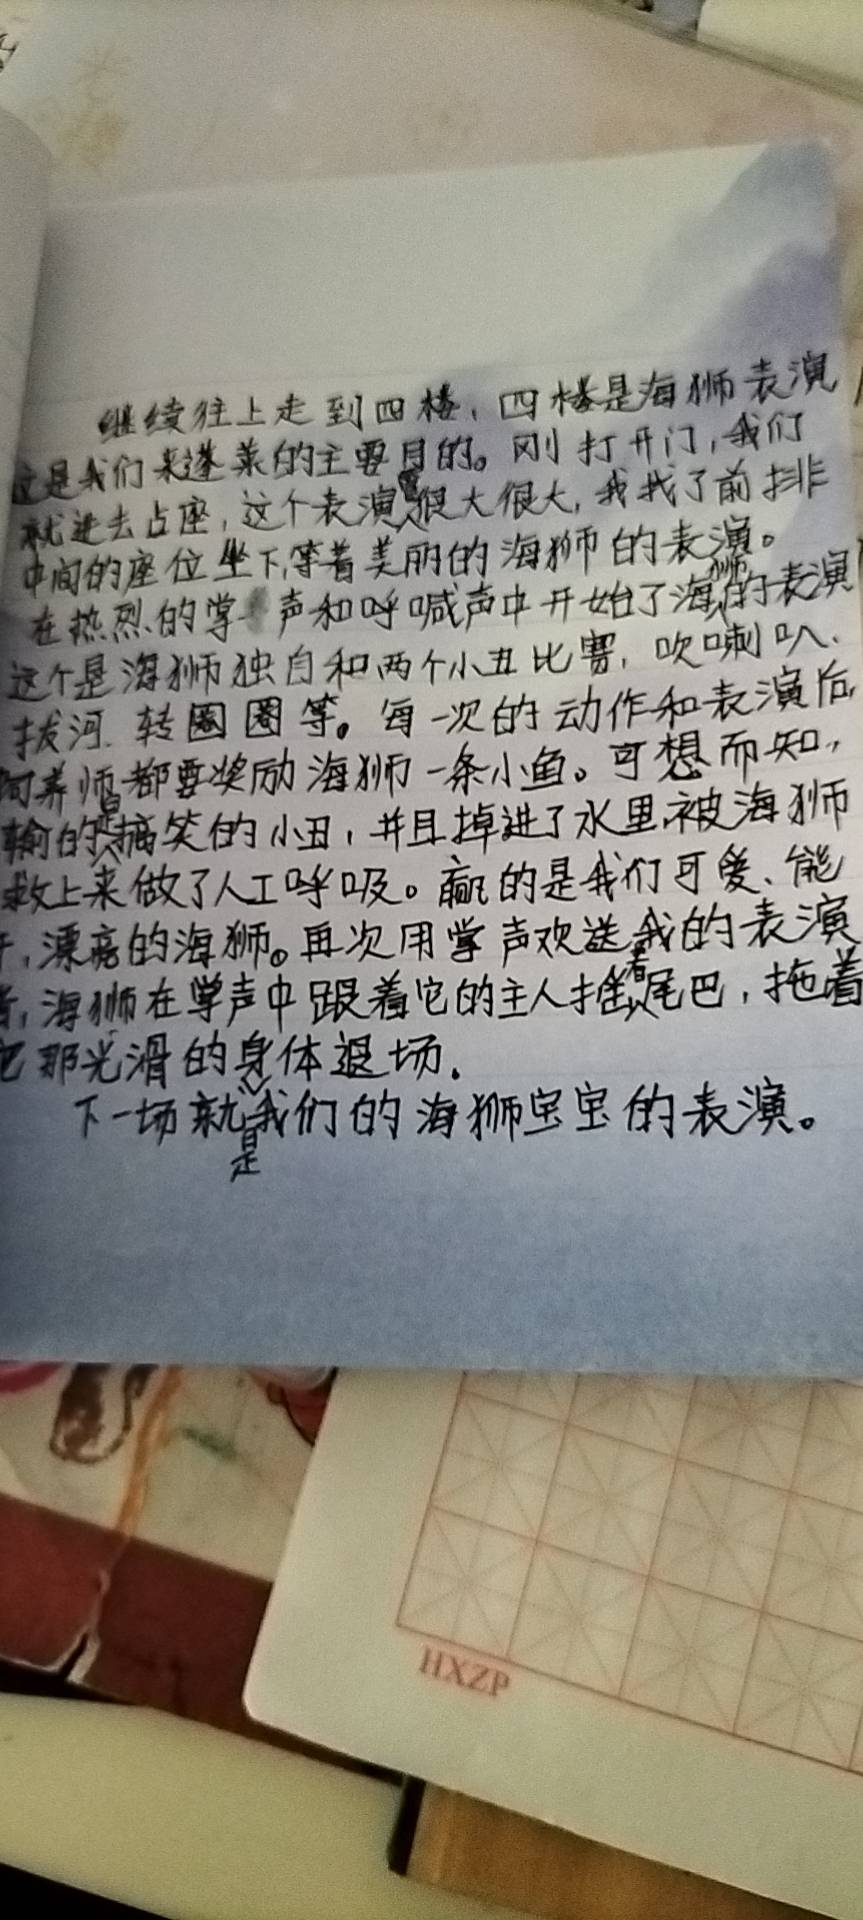 继续往上走到四楼，四楼是海狮表演
这是我们来蓬莱的主要目的。刚打开门，我们
就进去占座，这个表演馆很大很大，我找了前排
中间的座位坐下，等着美丽的海狮的表演。
在热烈的掌声和呼喊声中开始了海狮的表演
这个是海狮独自和两个小丑比赛，吹喇叭、
拔河、转圈圈等。每一次的动作和表演后，
饲养师都要奖励海狮一条小鱼。可想而知，
输的是搞笑的小丑，并且掉进了水里，被海狮
救上来做了人工呼吸。赢的是我们可爱、能
干，漂亮的海狮。再次用掌声欢送我的表演
海狮在掌声中跟着它的主人摇着尾巴，拖着
它那光滑的身体退场.
下一场就是我们的海狮宝宝的表演。
HXZP